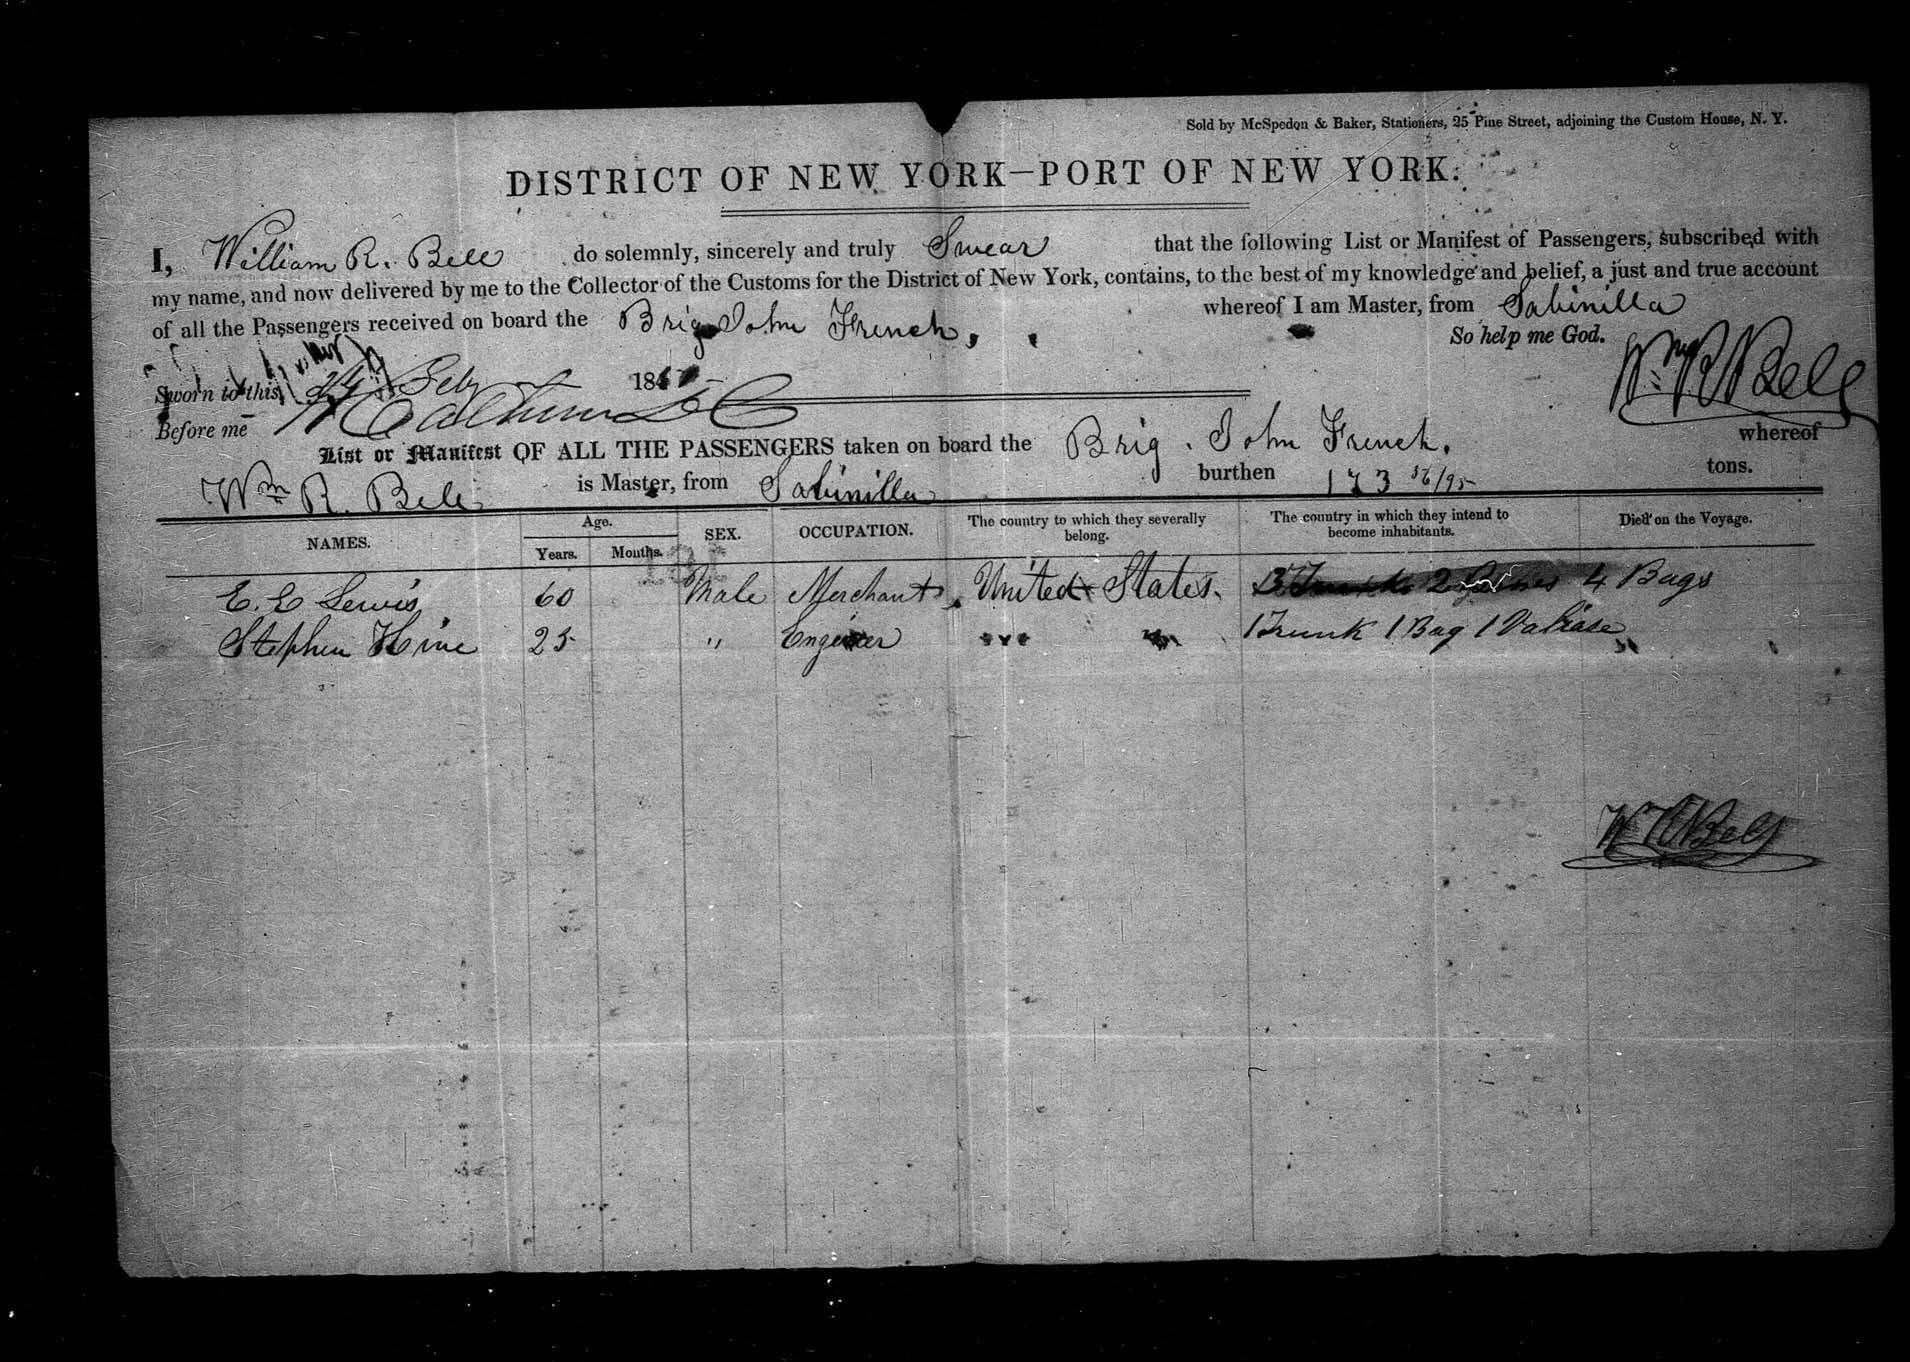 Sold by McSpedon & Baker, Stationers, 25 Pine Street, adjoining the Custom House, N. Y.
DISTRICT OF NEW YORK—PORT OF NEW YORK.
I, William R. Bell do solemnly, sincerely and truly Swear that the following List or Manifest of Passengers, subscribed with
my name, and now delivered by me to the Collector of the Customs for the District of New York, contains, to the best of my knowledge and belief, a just and true account
of all the Passengers received on board the Brig John French, whereof I am Master, from Sabinilla
So help me God.
Sworn to this 24 Feb 185
Wm R Bell
Before me
List or Manifest OF ALL THE PASSENGERS taken on board the Brig John French. whereof
Wm R. Bell is Master, from Sabinilla burthen 173 56/95 tons.
NAMES. Age. Years. Months. SEX. OCCUPATION. The country to which they severally belong. The country in which they intend to become inhabitants. Died on the Voyage.
E. E Lewis 60 Male Merchant United States. 4 Bags
Stephen Hine 25 " Engineer 1 Trunk 1 Bag 1 Valiase
Wm R Bell